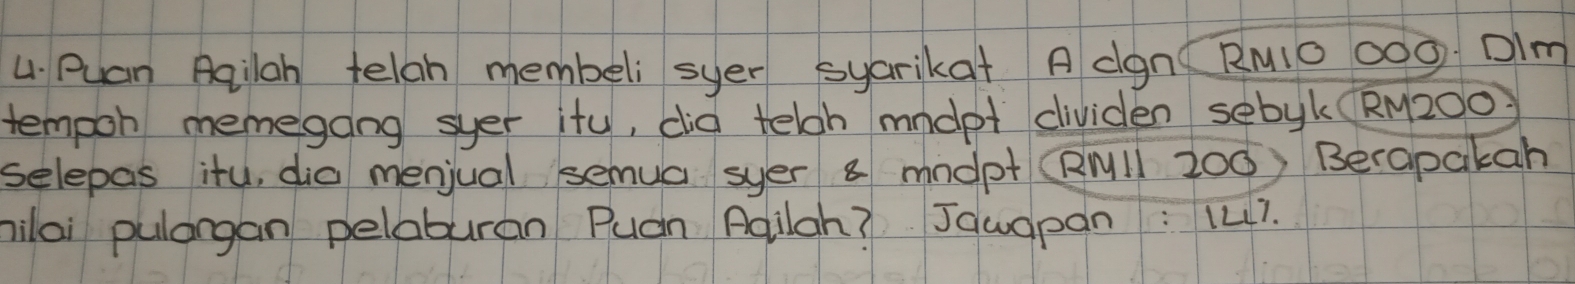 4. Puan Aqilah telah membeli syer syarikat A dgn RM10 000. Dlm
tempoh memegang syer itu, dia telah mndpt dividen sebyk RM200.
Selepas itu, dia menjual semua syer & mndpt RM11 200. Berapakah
nilai pulangan pelaburan Puan Aqilah? Jawapan : 14%.